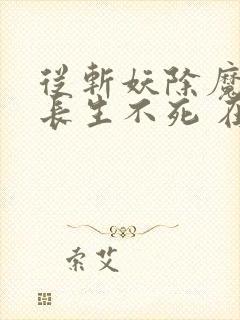 從斬妖除魔
長生不死
索艾